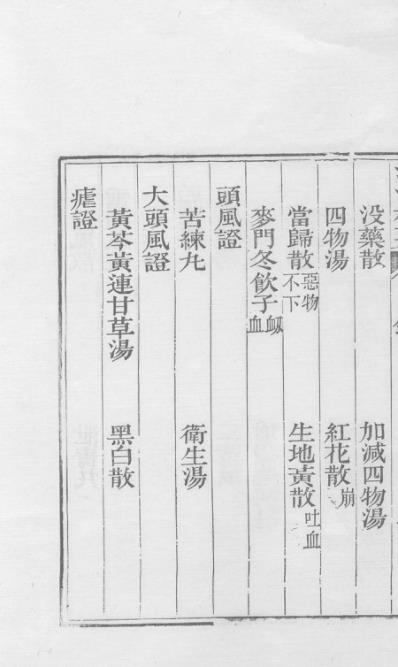 没藥散 加減四物湯
四物湯 紅花散崩
當歸散惡物不下 生地黃散吐血
麥門冬飲子衂血
頭風證
苦練丸 衛生湯
大頭風證
黃芩黃連甘草湯 黑白散
瘧證